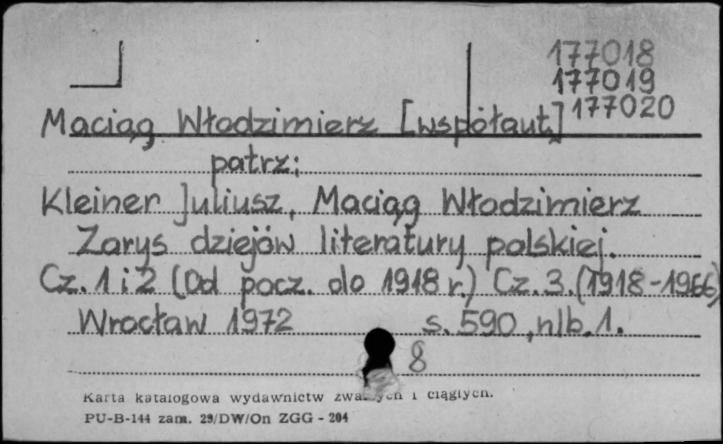 177018
177019
177020
Maciąg Włodzimierz [współaut.]
patrz:
Kleiner Juliusz, Maciąg Włodzimierz
Zarys dziejów literatury polskiej.
Cz. 1 i 2 (Od pocz. do 1918 r.) Cz. 3. (1918-1966)
Wrocław 1972 s. 590, nlb. 1.
8
Karta katalogowa wydawnictw i ciągłych.
PU-B-144 zam. 29/DW/On ZGG - 204